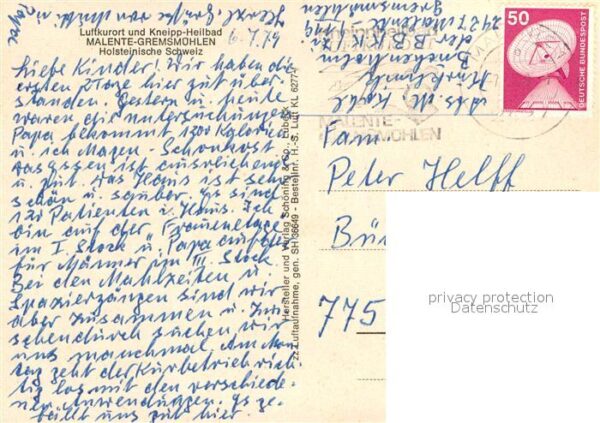 Luftkurort und Kneipp-Heilbad
MALENTE-GREMSMÜHLEN
Holsteinische Schweiz
6.7.79
Liebe Kinder! Wir haben die
ersten Tage hier gut über-
standen. Gestern u. heute
waren die Untersuchungen
Papa bekommt 1200 Kalorien
u. ich Magen-Schonkost
Das Essen ist ausreichend
u. gut. Das Haus ist sehr
schön u. sauber. Es sind
120 Patienten i. Haus. Ich
bin auf der Frauenetage
im I. Stock u. Papa auf der
für Männer im III. Stock.
Bei den Mahlzeiten u.
Spaziergängen sind wir
aber zusammen u. zwi-
schendurch suchen wir
uns manchmal. Am Mon-
tag geht der Kurbetrieb rich-
tig los mit den verschiede-
nen Anwendungen. Es ge-
fällt uns gut hier.
Herzl. Grüße von Mutti u.
Papa
Hersteller und Verlag Schöning & Co., Lübeck
zz Luftaufnahme, gen. SH 38649 - Bestellnr. H.-S. Luft KL 6277
Abs.
2427 Malente
Gremsmühlen
MALENTE-
GREMSMÜHLEN
50
DEUTSCHE BUNDESPOST
Fam.
Peter Helff
775
privacy protection
Datenschutz